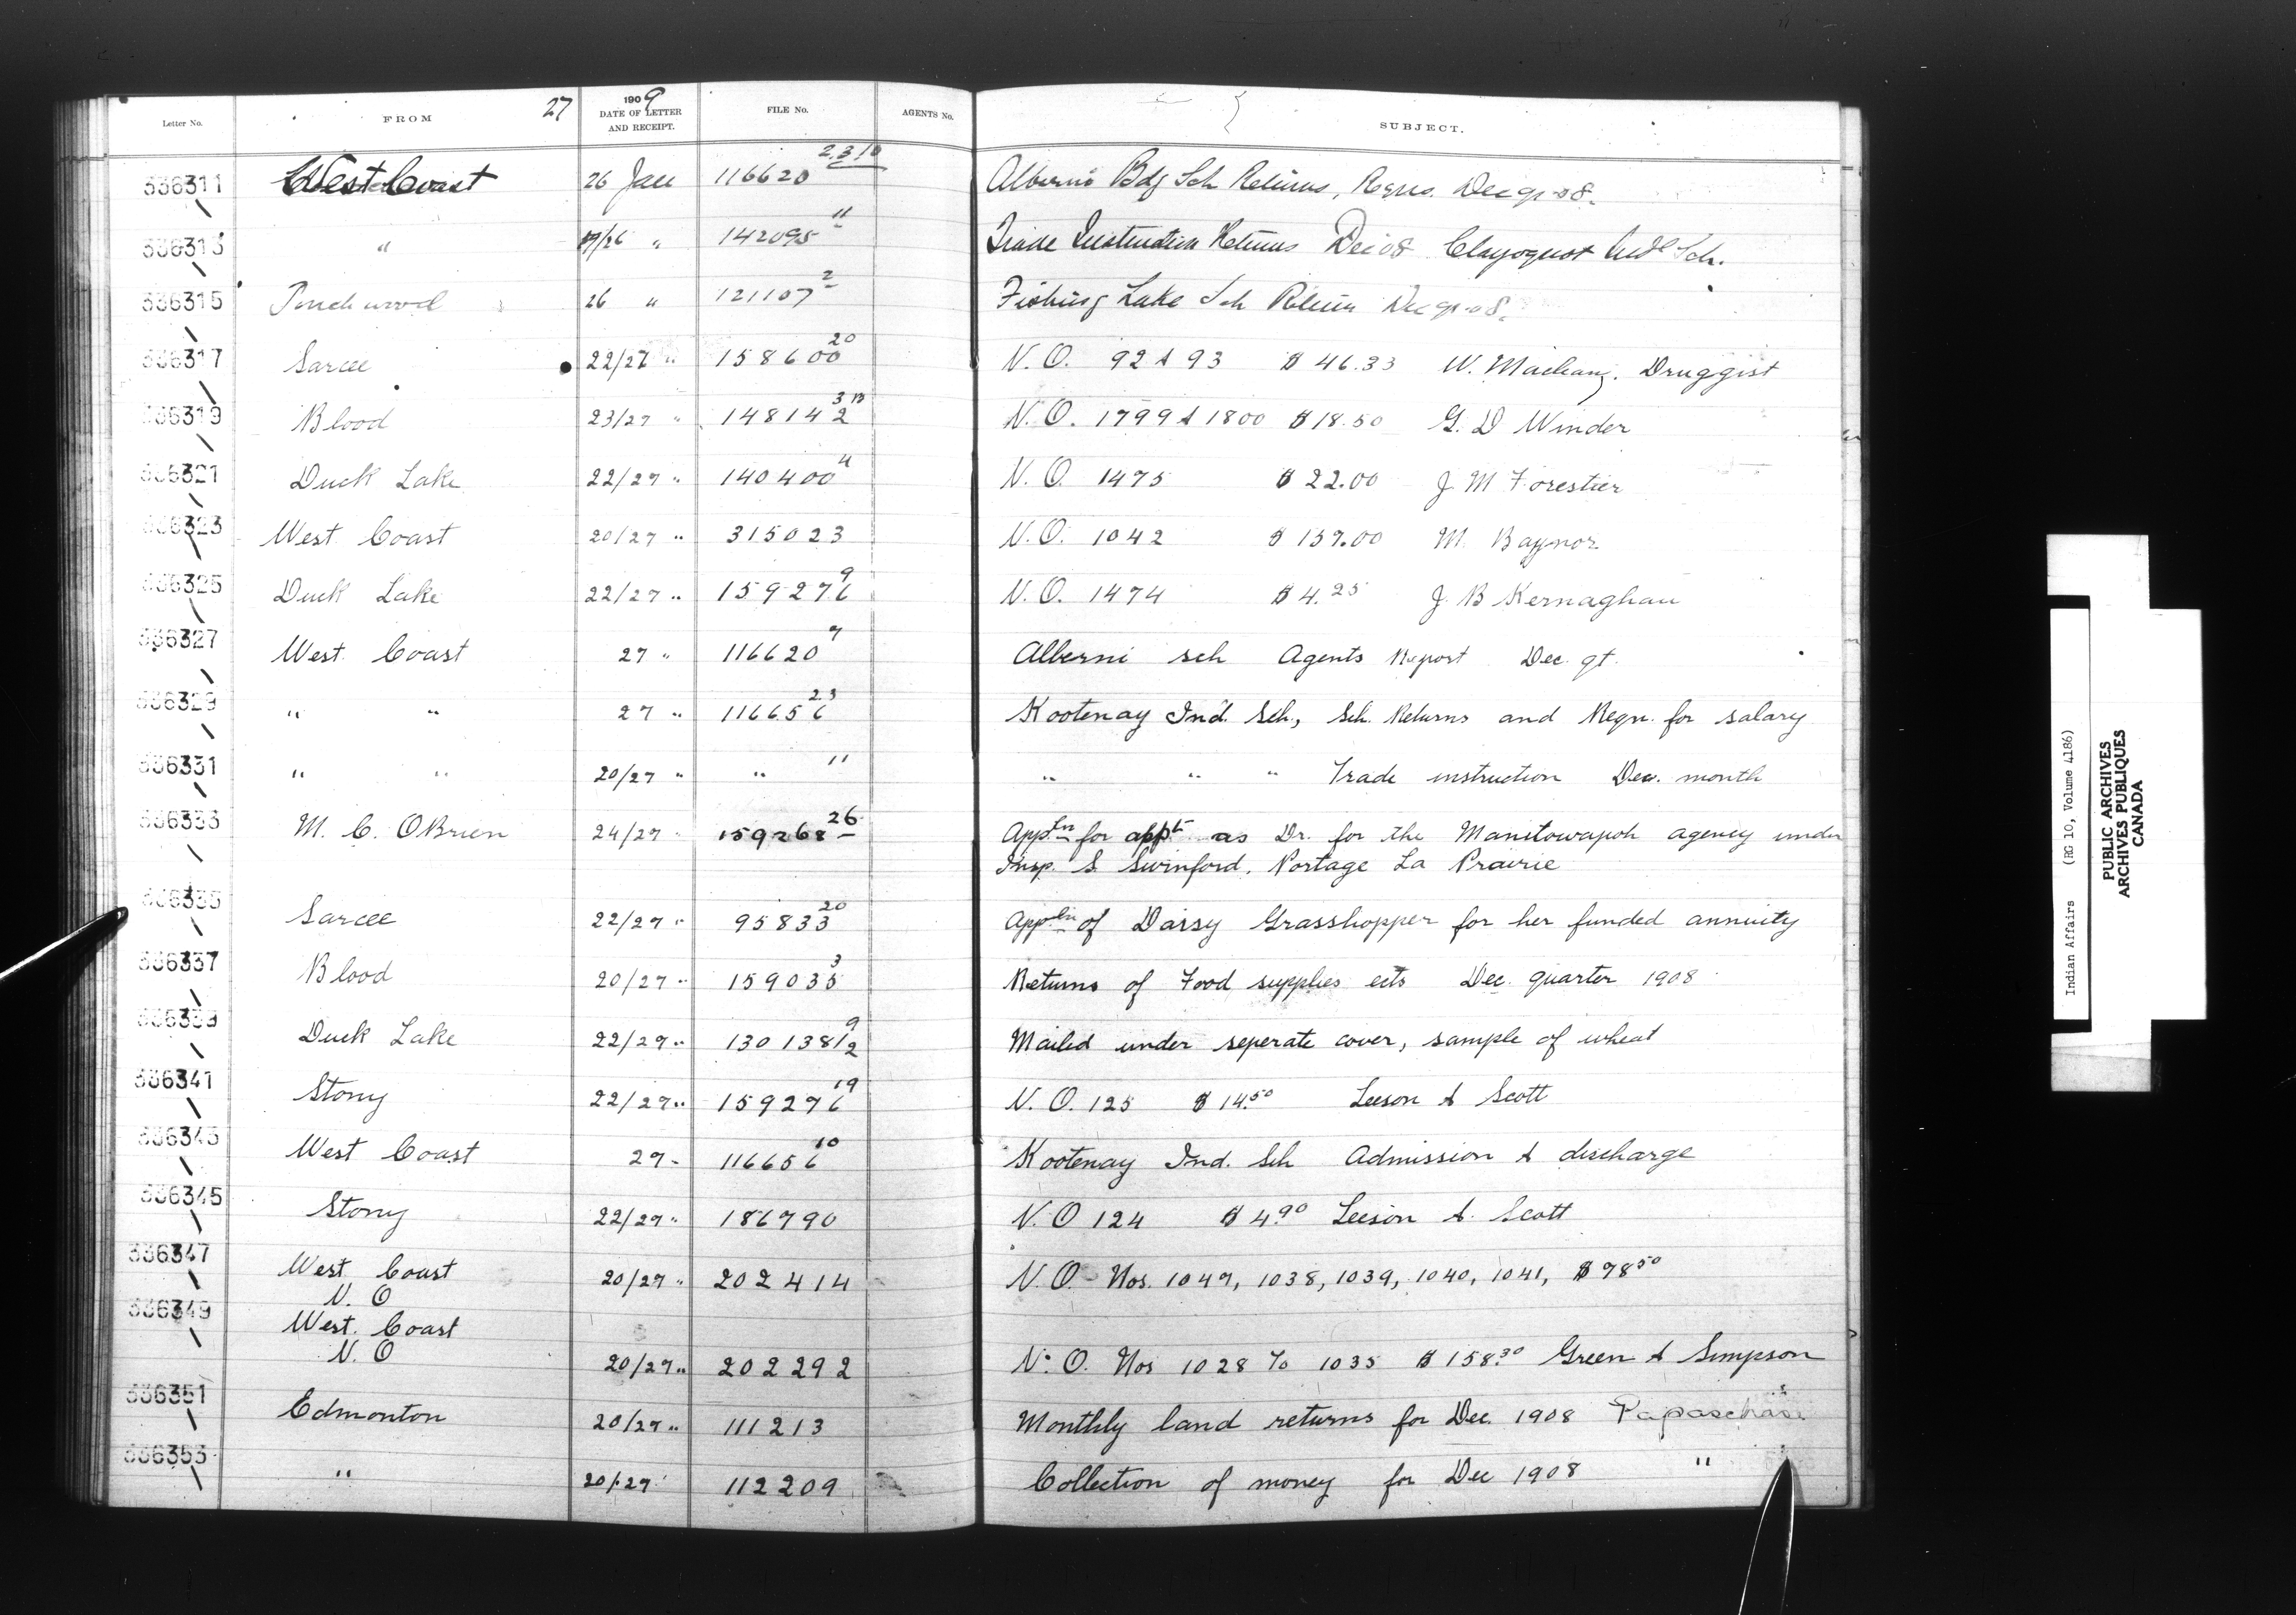 Letter No. FROM 27 1909 DATE OF LETTER AND RECEIPT. FILE No. AGENTS No. SUBJECT.
336311 West Coast 26 Jan 116620 2.3.10 Alberni Bdg Sch Returns, Reqns. Dec qr 08.
336313 " 19/26 " 142095 11 Trade Instruction Returns Dec 08 Clayoquot Indl Sch.
336315 Touchwood 26 " 121107 2 Fishing Lake Sch Return Dec qr 08.
336317 Sarcee 22/27 " 158600 20 V.O. 92 & 93 $46.33 W. Druggist
336319 Blood 23/27 " 148142 3 13 V.O. 1799 & 1800 $18.50 G. D Winder
336321 Duck Lake 22/27 " 140400 4 V.O. 1475 $22.00 J. M Forestier
336323 West Coast 20/27 " 315023 V.O. 1042 $137.00 M. Baynor
336325 Duck Lake 22/27 " 159276 9 V.O. 1474 $4.25 J. B Kernaghan
336327 West Coast 27 " 116620 7 Alberni sch Agents Report Dec. qt.
336329 " " 27 " 116656 2.3 Kootenay Ind. Sch, Sch. Returns and Reqn. for salary
336331 " " 20/27 " " 11 " " " Trade instruction Dec. month
336333 M. C. OBrien 24/27 " 159268 26 Apptn for appt as Dr. for the Manitowapoh agency under
Insp. S. Swinford, Portage La Prairie
336335 Sarcee 22/27 " 95833 20 Appln of Daisy Grasshopper for her funded annuity
336337 Blood 20/27 " 159035 3 Returns of Food supplies ects Dec. quarter 1908
336339 Duck Lake 22/29 " 130138 1/2 9 Mailed under seperate cover, sample of wheat
336341 Stony 22/27 " 159276 19 V.O. 125 $14.50 Leeson & Scott
336343 West Coast 27 - 116656 10 Kootenay Ind. Sch Admission & discharge
336345 Stony 22/27 " 186790 V.O 124 $4.90 Leeson & Scott
336347 West Coast V. O 20/27 " 202414 V.O. Nos. 1047, 1038, 1039, 1040, 1041, $78.50
336349 West Coast V. O 20/27 " 202292 V.O. Nos 1028 to 1035 $158.30 Green & Simpson
336351 Edmonton 20/27 " 111213 Monthly land returns for Dec. 1908 Papaschase
336353 " 20/27 112209 Collection of money for Dec 1908 "
Indian Affairs (RG 10, Volume 4186)
PUBLIC ARCHIVES
ARCHIVES PUBLIQUES
CANADA